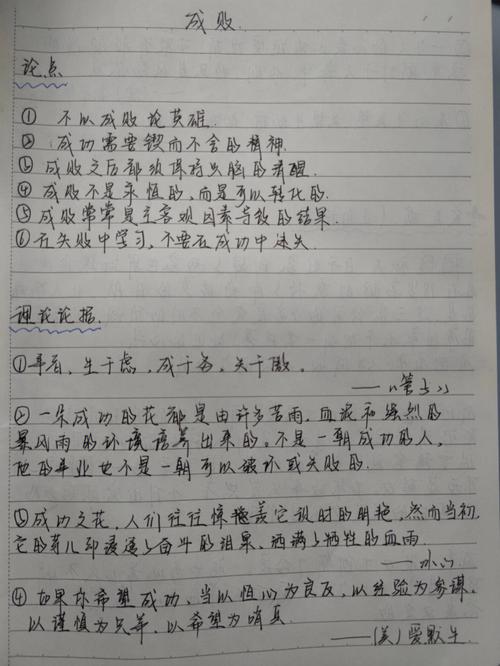 成败.
论点
① 不以成败论英雄.
② 成功需要锲而不舍的精神.
③ 成败之后都须保持头脑的清醒.
④ 成败不是永恒的,而是可以转化的.
⑤ 成败常常是主客观因素导致的结果.
⑥ 在失败中学习,不要在成功中迷失.
理论论据.
① 事者,生于虑,成于务,失于傲。
——《管子》
② 一朵成功的花都是由许多苦雨,血泥和强烈的
暴风雨的环境培养出来的,不是一朝成功的人,
他的事业也不是一朝可以破坏或失败的.
③ 成功之花,人们往往惊羡它现时的明艳,然而当初,
它的芽儿却浸透了奋斗的泪泉,洒满了牺牲的血雨.
——冰心
④ 如果你希望成功,当以恒心为良友,以经验为参谋,
以谨慎为兄弟,以希望为哨兵.
——(美)爱默生